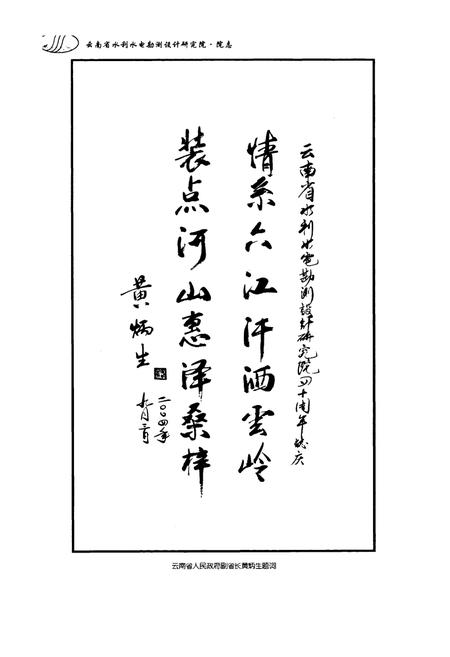 云南省水利水电勘测设计研究院·院志
云南省水利水电勘测設計研究院四十周年誌庆
情系六江汗洒雲岭
装点河山惠泽桑梓
黄炳生
二〇〇四年
九月三日
云南省人民政府副省长黄炳生题词